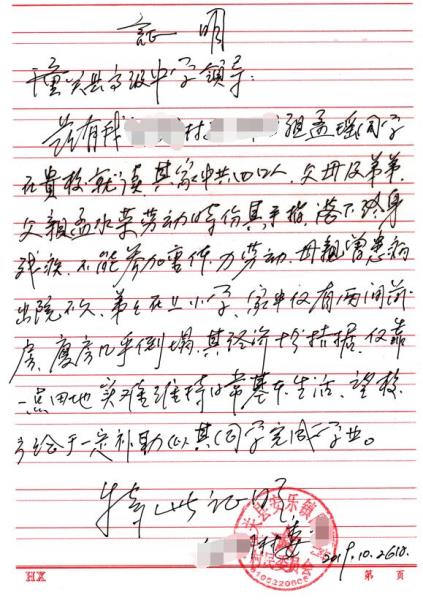 証明
潼关县高级中学领导：
兹有我 村 组孟瑶同学
在贵校就读，其家中共四口人，父母及弟弟，
父亲孟水荣劳动时伤其手指，落下终身
残疾，不能参加重体力劳动，母亲曾患病
出院不久，弟弟在上小学，家中仅有两间前
房，厦房几乎倒塌，其经济十分拮据，仅靠
一点田地实难维持日常基本生活，望校
方给于一定补助以其同学完成学业。
特此证明
村委
2019.10.26日.
关县安乐镇
村民委员会
HX 第 页